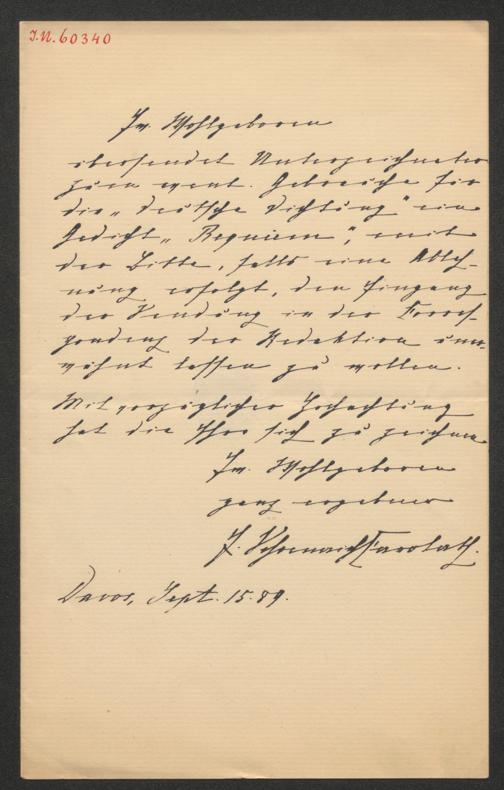 I.N. 60340
Ew. Wohlgeboren
übersendet Unterzeichneter
zum event. Gebrauche für
die „Deutsche Dichtung" ein
Gedicht „Requiem", mit
der Bitte, falls eine Ableh-
nung erfolgt, den Eingang
der Sendung in der Corres-
pondenz der Redaktion uner-
wähnt lassen zu wollen.
Mit vorzüglicher Hochachtung
hat die Ehre sich zu zeichnen
Ew. Wohlgeboren
ganz ergebener
E. Schoenaich Carolath.
Davos, Sept. 15. 89.